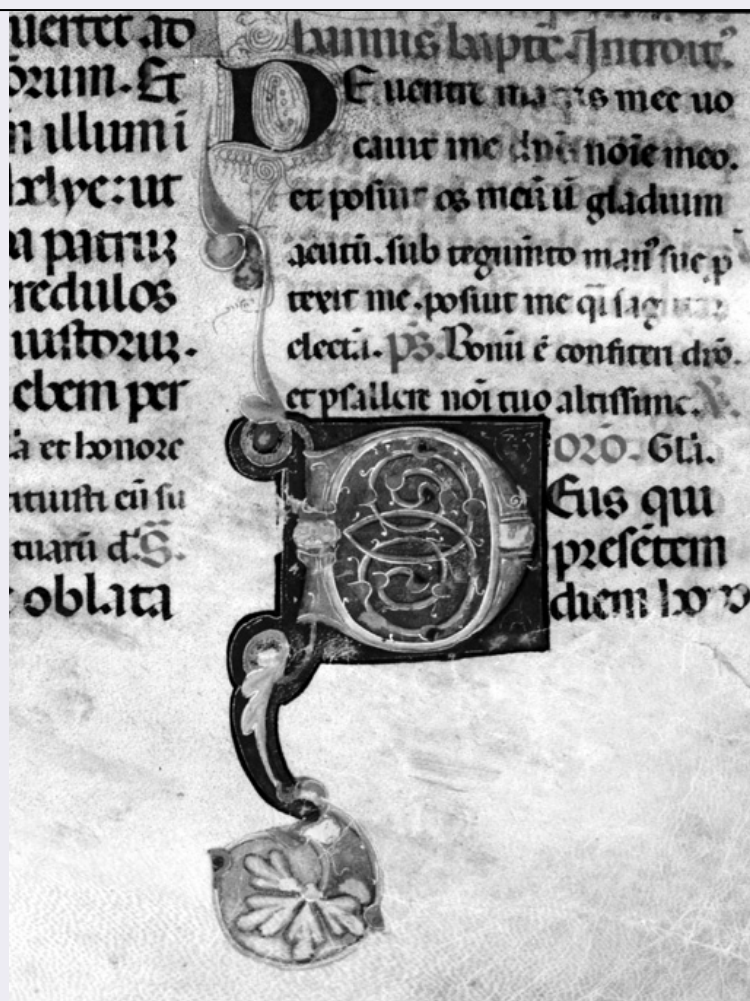 uertet ad
orum. Et
n illumi
helye: ut
a patruz
credulos
iustoruz.
ebem per
a et honore
ituisti eū su
tuarū d. S.
oblata
hannis bapte. Introit9.
DE uentre matris mee uo
cauit me dn̄s noīe meo.
et posuit os meū ū gladium
acutū. sub teguīnto man9 sue p
texit me. posuit me qi sagittaz
electā. ps. Bonū ē confiteri dn̄o.
et psallere noī tuo altissime. V.
oro. Glā.
DEus qui
presētem
diem hono